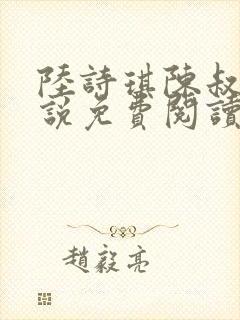 陸詩琪陳叔
說免費閱讀
趙毅亮